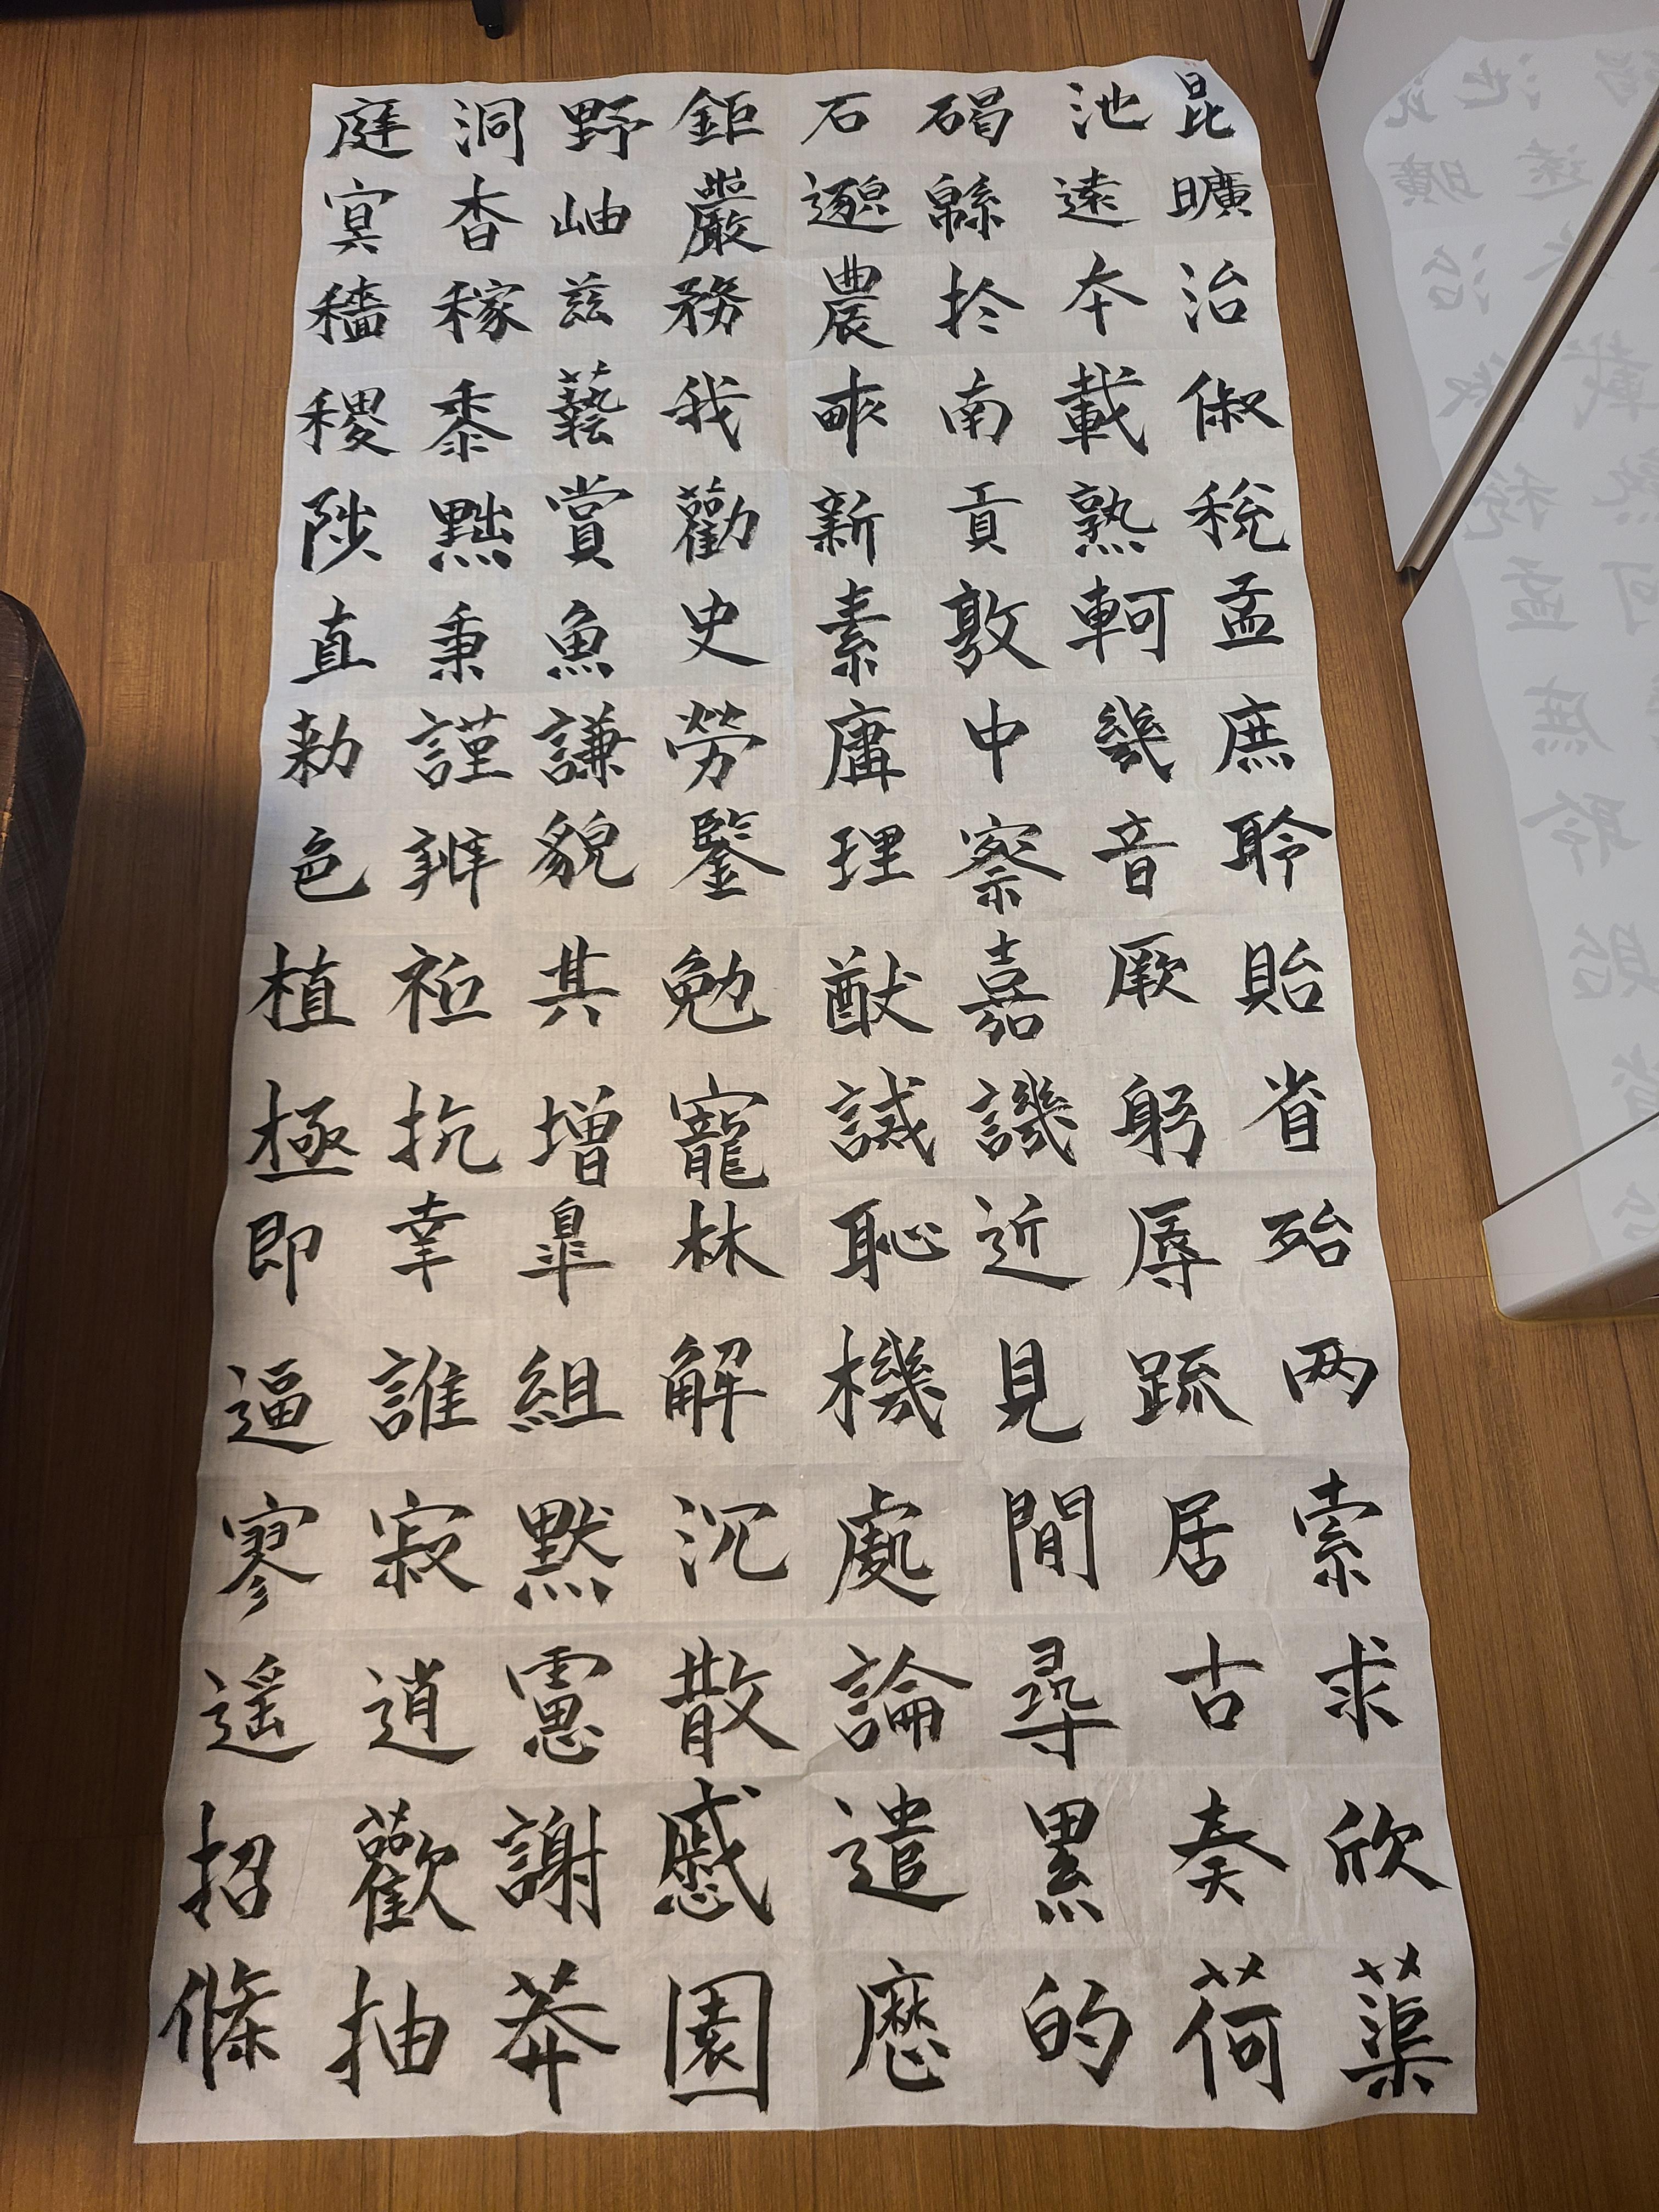 昆池碣石鉅野洞庭
曠遠緜邈巖岫杳冥
治本於農務茲稼穡
俶載南畝我藝黍稷
稅熟貢新勸賞黜陟
孟軻敦素史魚秉直
庶幾中庸勞謙謹勅
聆音察理鑒貌辨色
貽厥嘉猷勉其祗植
省躬譏誡寵增抗極
殆辱近恥林皐幸即
两疏見機解組誰逼
索居閒處沉默寂寥
求古尋論散慮逍遥
欣奏累遣慼謝歡招
蕖荷的歷園莽抽條